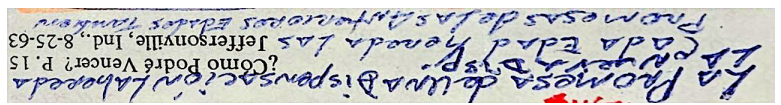 La Promesa de una Dispensación La hereda
La nueva Disp.
¿Cómo Podré Vencer? P. 15
Cada Edad hereda Las
Jeffersonville, Ind., 8-25-63
Promesas de Las Anteriores Edades También